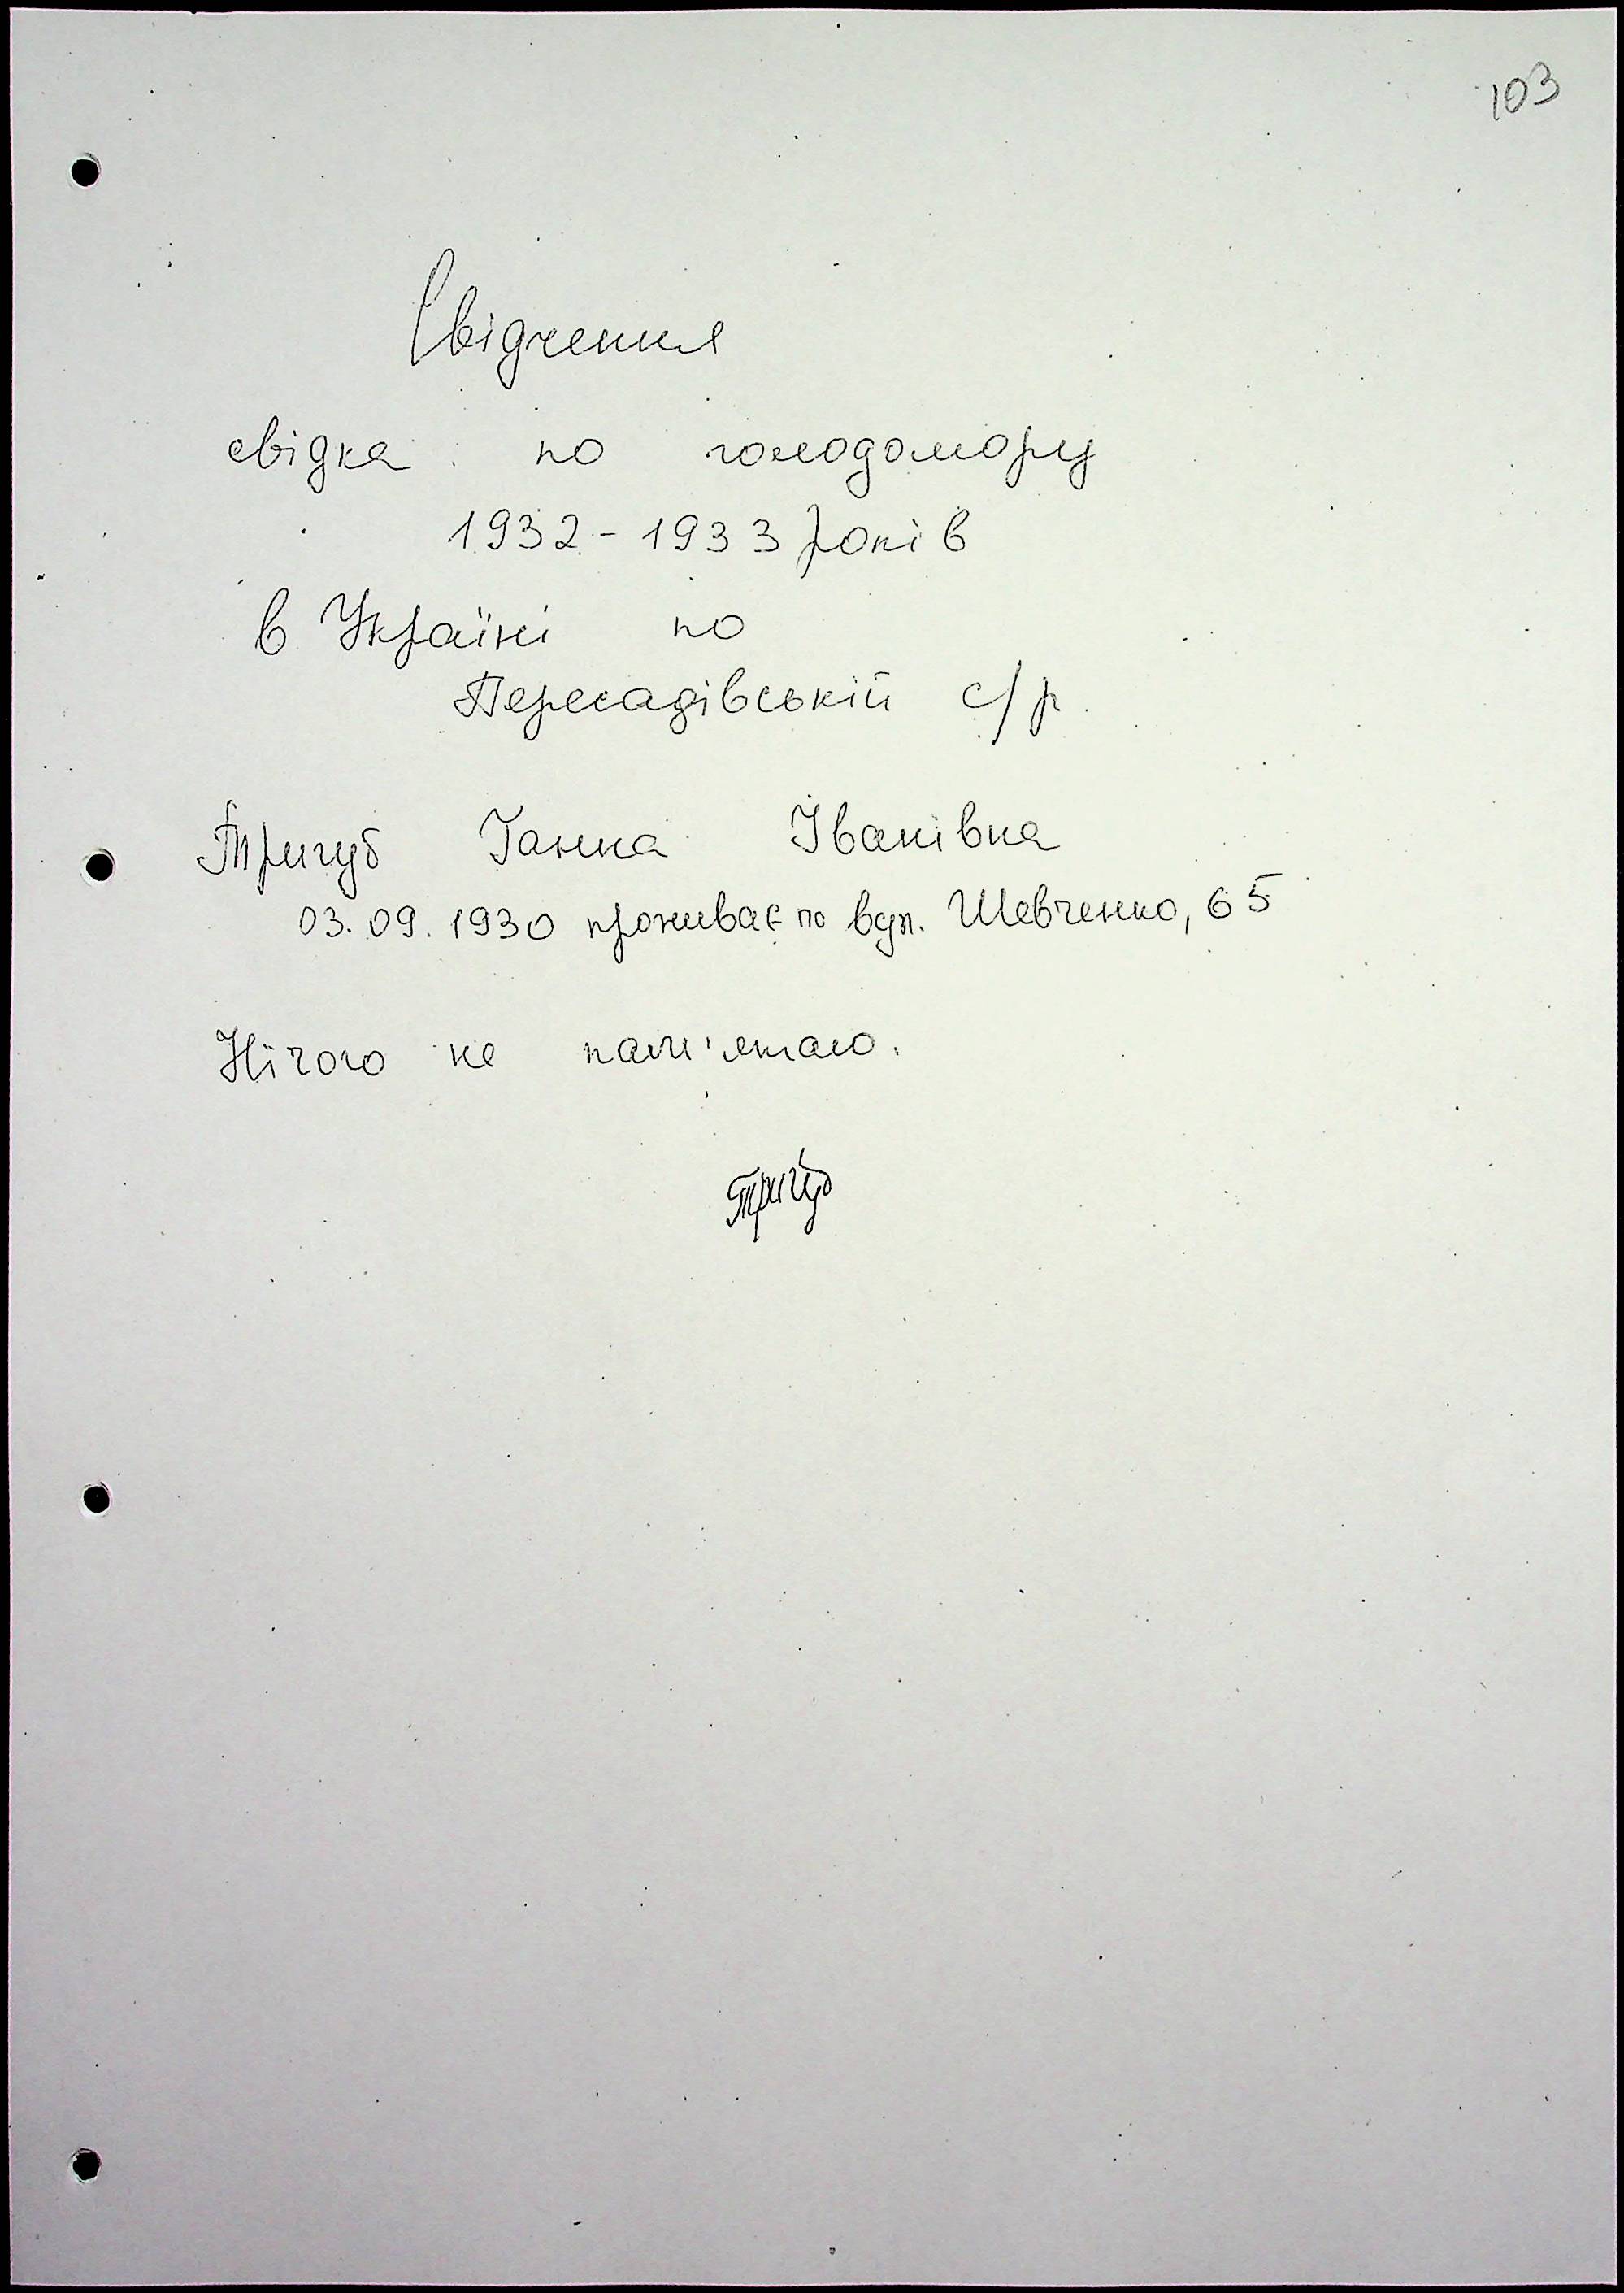 103
Свідчення
свідка по голодомору
1932-1933 років
в Україні по
Пересадівській с/р.
Тригуб Ганна Іванівна
03.09.1930 проживає по вул. Шевченко, 65
Нічого не пам'ятаю.
Тригуб